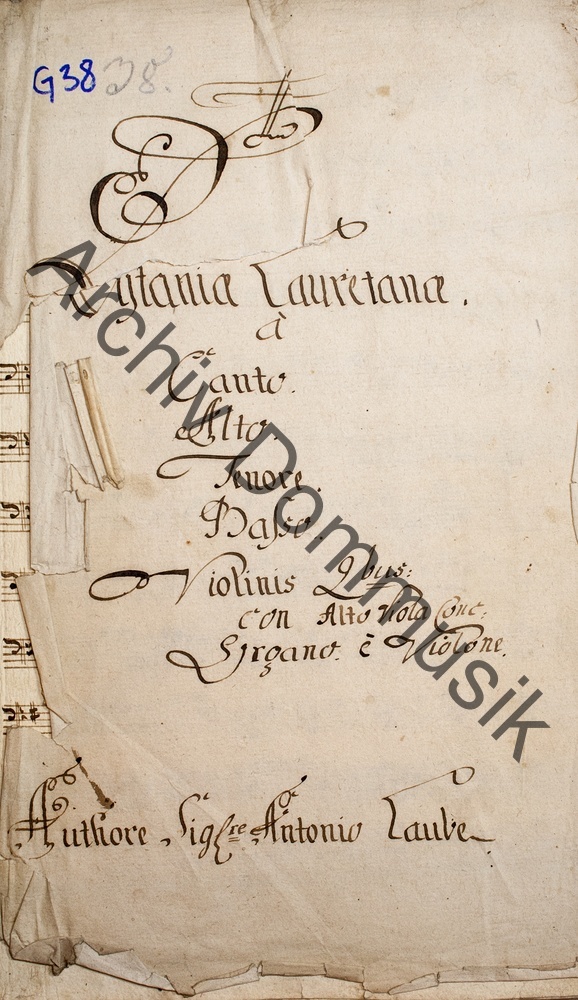 G38 38.
Lytaniæ Lauretanæ.
à
Canto.
Alto.
Tenore.
Basso.
Violinis 2bus:
con Alto Viola Conc:
Organo. è Violone.
Authore Sigre Antonio Laube
Archiv Dommusik